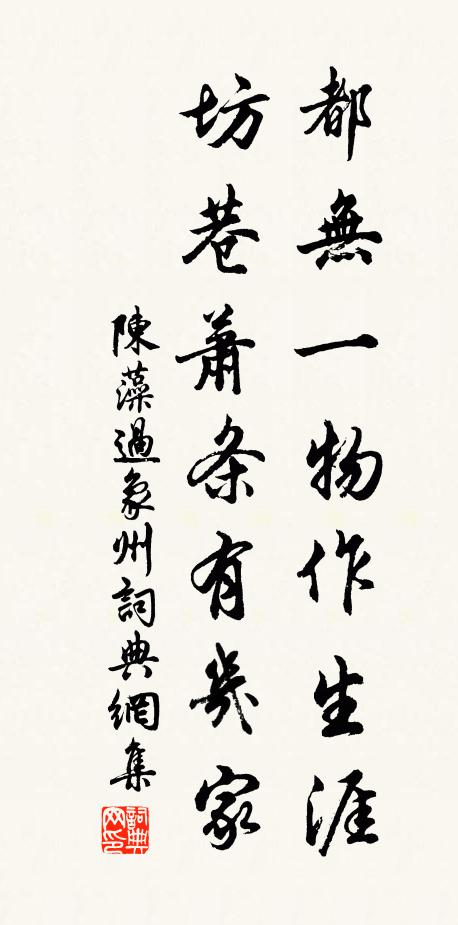 都無一物作生涯
坊巷蕭条有幾家
陳藻過象州詞典網集
詞典網印